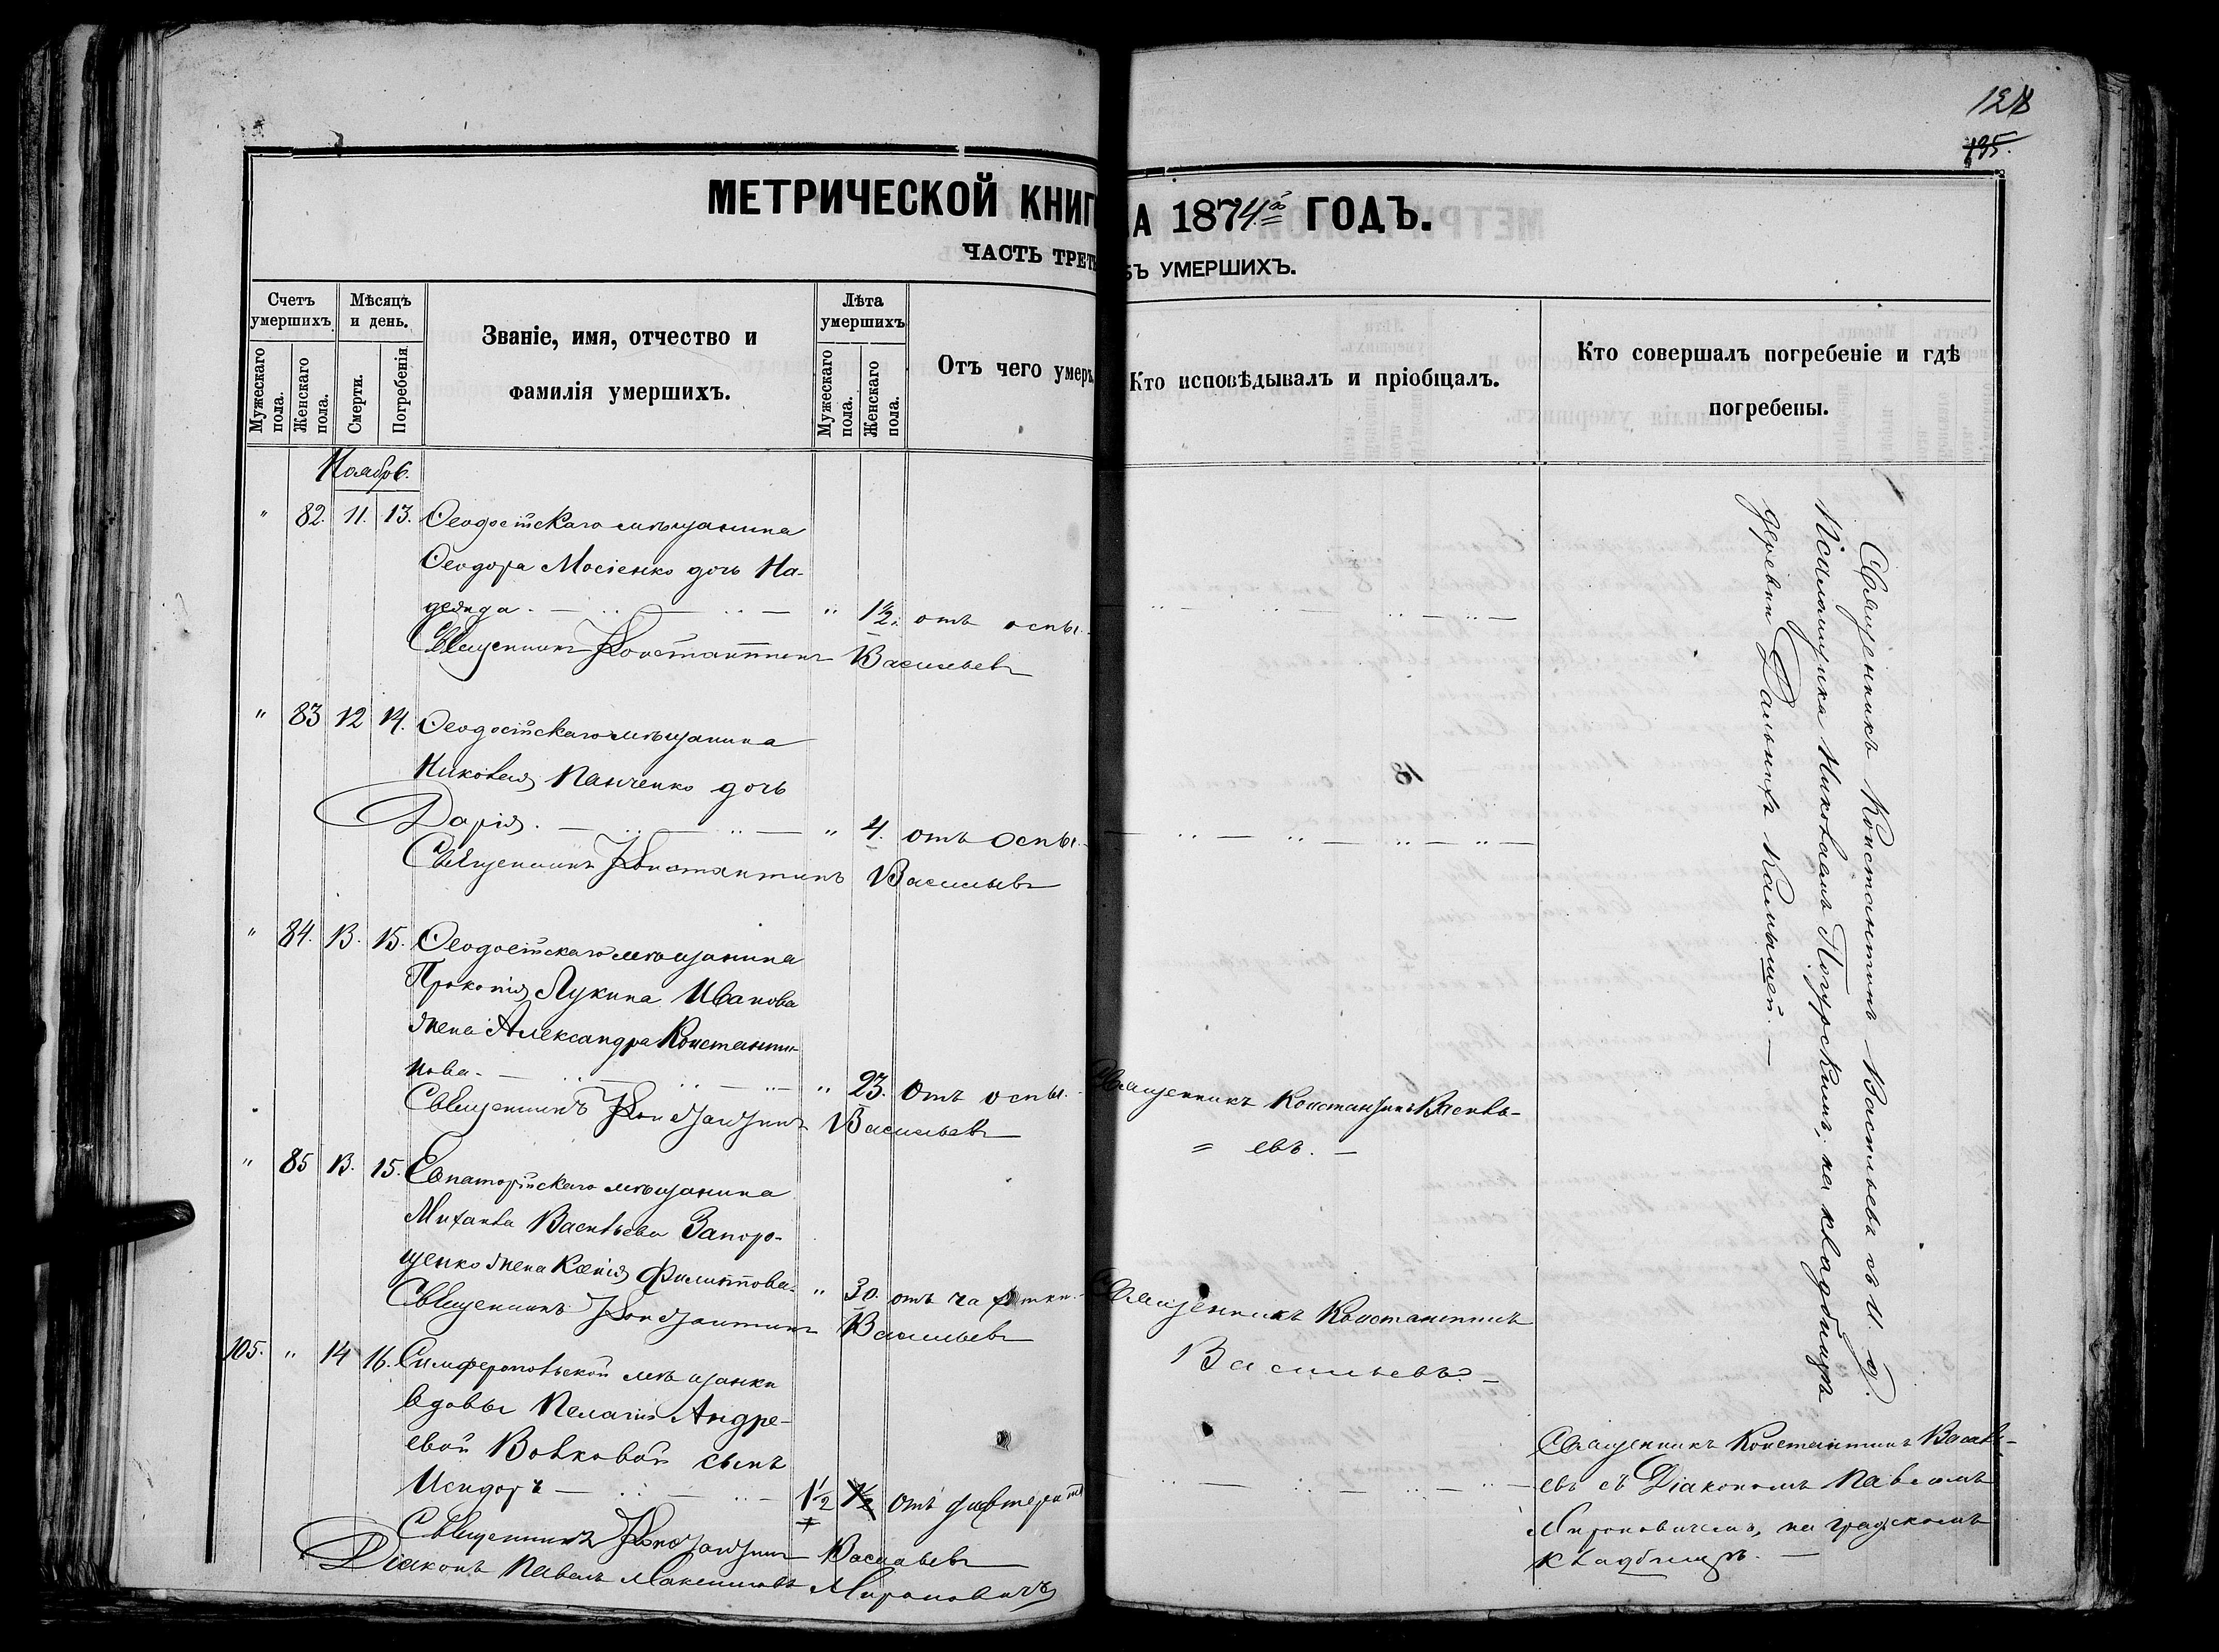 128
195.
МЕТРИЧЕСКОЙ КНИГ
А 1874й ГОДЪ.
ЧАСТЬ ТРЕТ
БЪ УМЕРШИХЪ.
Счетъ умершихъ.
Мужескаго пола.
Женскаго пола.
Мѣсяцъ и день.
Смерти.
Погребенія
Званіе, имя, отчество и
фамилія умершихъ.
Лѣта умершихъ
Мужескаго пола.
Женскаго пола.
Отъ чего умер
Кто исповѣдывалъ и пріобщалъ.
Кто совершалъ погребеніе и гдѣ
погребены.
Ноябрь.
" 82. 11. 13. Ѳеодосійскаго мѣщанина
Ѳеодора Мосіенко дочь На-
дежда. " 1½. отъ оспы.
Священникъ Константинъ Васильевъ
" 83 12 14. Ѳеодосійскаго мѣщанина
Николая Панченко дочь
Дарія. " 4. отъ оспы.
Священникъ Константинъ Васильевъ
" 84. 13. 15. Ѳеодосійскаго мѣщанина
Прокопія Лукина Иванова
жена Александра Константи-
нова. " 23. отъ оспы. Священникъ Константинъ Василь-
= евъ.
Священникъ Константинъ Васильевъ
" 85 13. 15. Евпаторійскаго мѣщанина
Михаила Васильева Запоро-
щенко жена Ксенія Филиппова. " 30. отъ чахотки. Священникъ Константинъ
Васильевъ.
Священникъ Константинъ Васильевъ
Священникъ Константинъ Васильевъ съ И. д.
Псаломщика Николаемъ Погурскимъ, на кладбищѣ
деревни Дальнихъ Камышей.
105. " 14 16. Симферопольской мѣщанки
вдовы Пелагіи Андре-
евой Волковой сынъ
Исидоръ 1½ ½ отъ дифтерита
Священникъ Константинъ Василь-
евъ съ Діакономъ Павломъ
Мироновичемъ, на градскомъ
кладбищѣ.
Священникъ Константинъ Васильевъ
Діаконъ Павелъ Максимовъ Мироновичъ